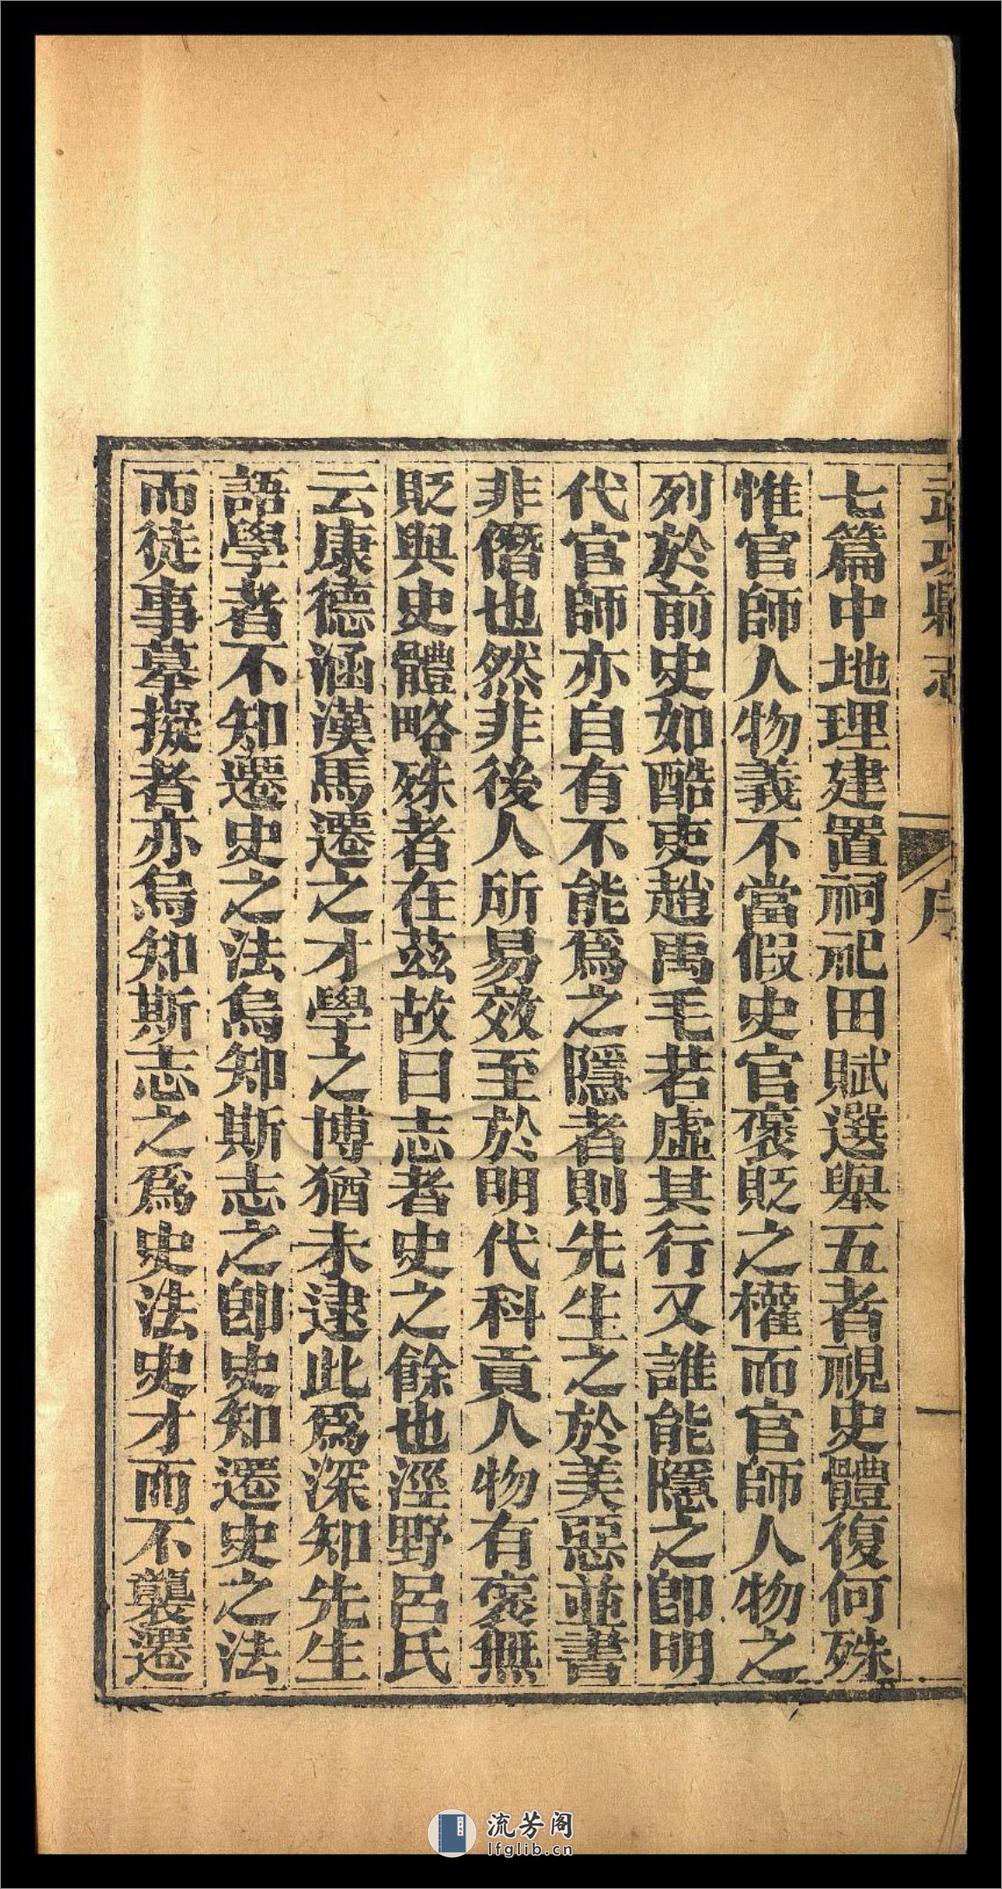 武功縣志
序
一
七篇中地理建置祠祀田賦選舉五者視史體復何殊
惟官師人物義不當假史官褒貶之權而官師人物之
列於前史如酷吏趙禹毛若虛其行又誰能隱之卽明
代官師亦自有不能爲之隱者則先生之於美惡並書
非僭也然非後人所易效至於明代科貢人物有褒無
貶與史體略殊者在茲故曰志者史之餘也涇野呂氏
云康德涵漢馬遷之才學之博猶未逮此爲深知先生
語學者不知遷史之法烏知斯志之卽史知遷史之法
而徒事摹擬者亦烏知斯志之爲史法史才而不襲遷
流芳阁
lfglib.cn